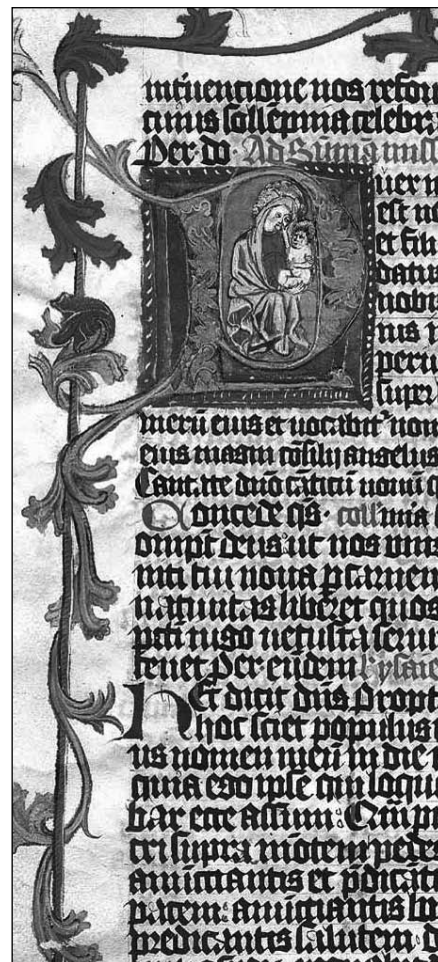 interuentione nos refou
timus sollempnia celebra
Per do· Ad Sumam miss
P uer n
est no
et fili
datus
nobis
nis i
periu
super
meru eius et uocabit᷑ nom
eius magni cōsilij angelus
Cantate dn̄o cāticū nouū q
Concede qs· coll'mia
ompt̄ deus ut nos vni
niti tui noua p carnem
natiuitas liberet quos
pcti iugo uetusta seruit
tenet Per eūdem Ysaie
hec dicit dn̄s Propt
hoc sciet populus
us nomen meū in die i
quia ego ipse qui loque
bar ecce assum· Qui pul
cri supra mōtem pedes
annūctiantis et p̄dicāti
pacem· annūctiantis bo
predicantis salutem· d